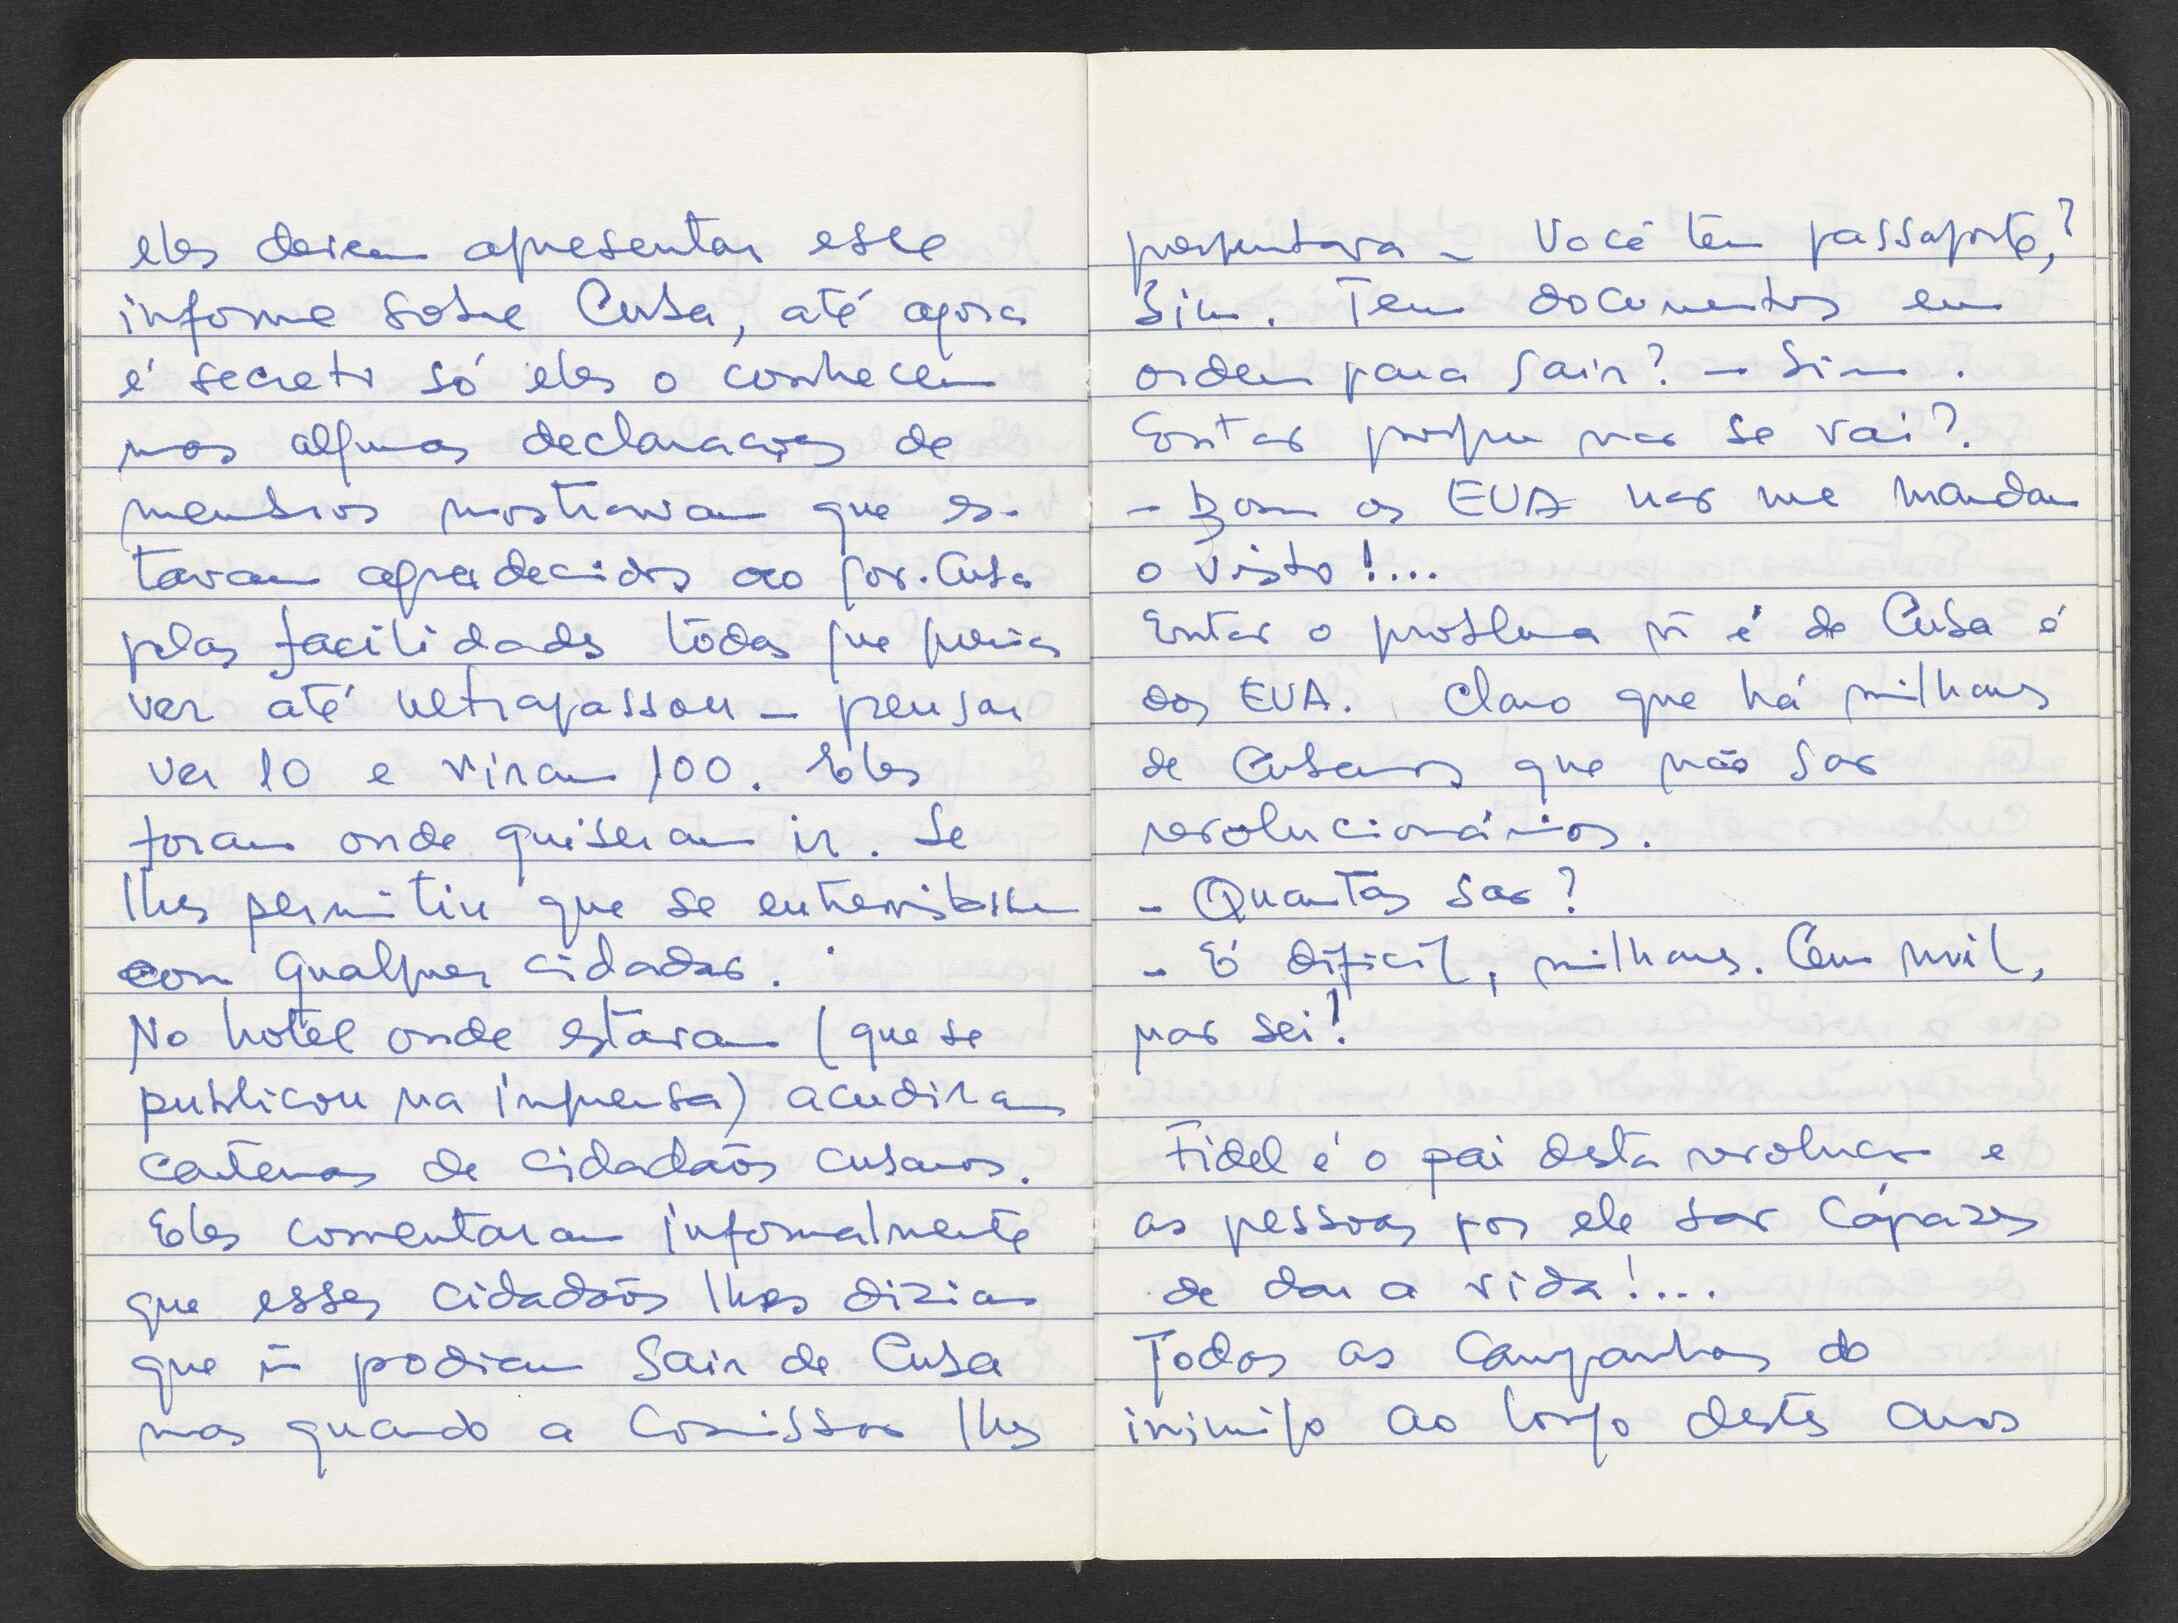 eles devem apresentar esse
informe sobre Cuba, até agora
é secreto só eles o conhecem
mas algumas declarações de
membros mostravam que es-
tavam agradecidos ao gov. Cuba
pelas facilidads tôdas que
ver até ultrapassou – pensar
ver 10 e viram 100. Eles
foram onde quiseram ir. Se
lhes permitiu que se entrevistassem
com qualquer cidadão.
No hotel onde estavam (que se
publicou na imprensa) acudiram
centenas de cidadãos cubanos.
Eles comentaram informalmente
que esses cidadãos lhes diziam
que ñ podiam sair de Cuba
mas quando a Comissão lhes
perguntava – Você tem passaporte,?
Sim. Tem documentos em
ordem para sair? – Sim.
Então porque não se vai?.
– Bom os EUA não me mandam
o visto!...
Então o problema ñ é de Cuba é
dos EUA. Claro que há milhares
de Cubanos que não são
revolucionários.
– Quantos são?
– É difícil, milhares. Cem mil,
não sei!
Fidel é o pai desta revolução e
as pessoas por ele são cápazes
de dar a vida!...
Todas as campanhas do
inimigo ao longo destes anos